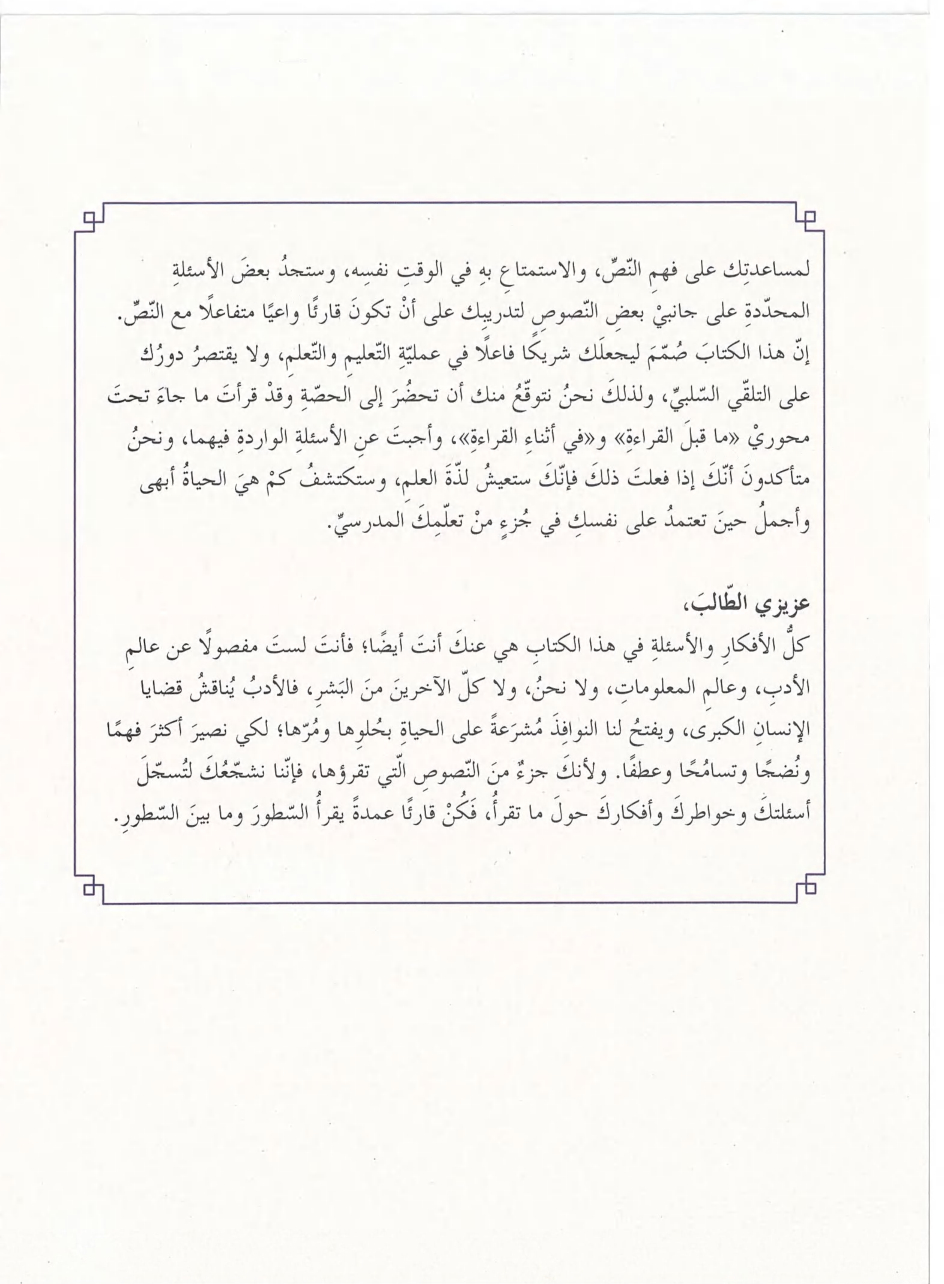 لمساعدتِك على فهمِ النّصِّ، والاستمتاعِ بهِ في الوقتِ نفسِه، وستجدُ بعضَ الأسئلةِ
المحدّدةِ على جانبيْ بعضِ النّصوصِ لتدريبِك على أنْ تكونَ قارئًا واعيًا متفاعلًا مع النّصِّ.
إنّ هذا الكتابَ صُمّمَ ليجعلَك شريكًا فاعلًا في عمليّةِ التّعليمِ والتّعلمِ، ولا يقتصرُ دورُك
على التلقّي السّلبيِّ، ولذلكَ نحنُ نتوقّعُ منك أن تحضُرَ إلى الحصّةِ وقدْ قرأتَ ما جاءَ تحتَ
محوريْ «ما قبلَ القراءةِ» و«في أثناءِ القراءةِ»، وأجبتَ عنِ الأسئلةِ الواردةِ فيهما، ونحنُ
متأكدونَ أنّكَ إذا فعلتَ ذلكَ فإنّكَ ستعيشُ لذّةَ العلمِ، وستكتشفُ كمْ هيَ الحياةُ أبهى
وأجملُ حينَ تعتمدُ على نفسكِ في جُزءٍ منْ تعلّمِكَ المدرسيِّ.
عزيزي الطّالبَ،
كلُّ الأفكارِ والأسئلةِ في هذا الكتابِ هي عنكَ أنتَ أيضًا؛ فأنتَ لستَ مفصولًا عن عالمِ
الأدبِ، وعالمِ المعلوماتِ، ولا نحنُ، ولا كلّ الآخرينَ منَ البَشرِ، فالأدبُ يُناقشُ قضايا
الإنسانِ الكبرى، ويفتحُ لنا النوافذَ مُشرَعةً على الحياةِ بحُلوِها ومُرّها؛ لكي نصيرَ أكثرَ فهمًا
ونُضجًا وتسامُحًا وعطفًا. ولأنكَ جزءٌ منَ النّصوصِ الّتي تقرؤها، فإنّنا نشجّعُكَ لتُسجّلَ
أسئلتكَ وخواطركَ وأفكاركَ حولَ ما تقرأُ، فَكُنْ قارئًا عمدةً يقرأُ السّطورَ وما بينَ السّطورِ.